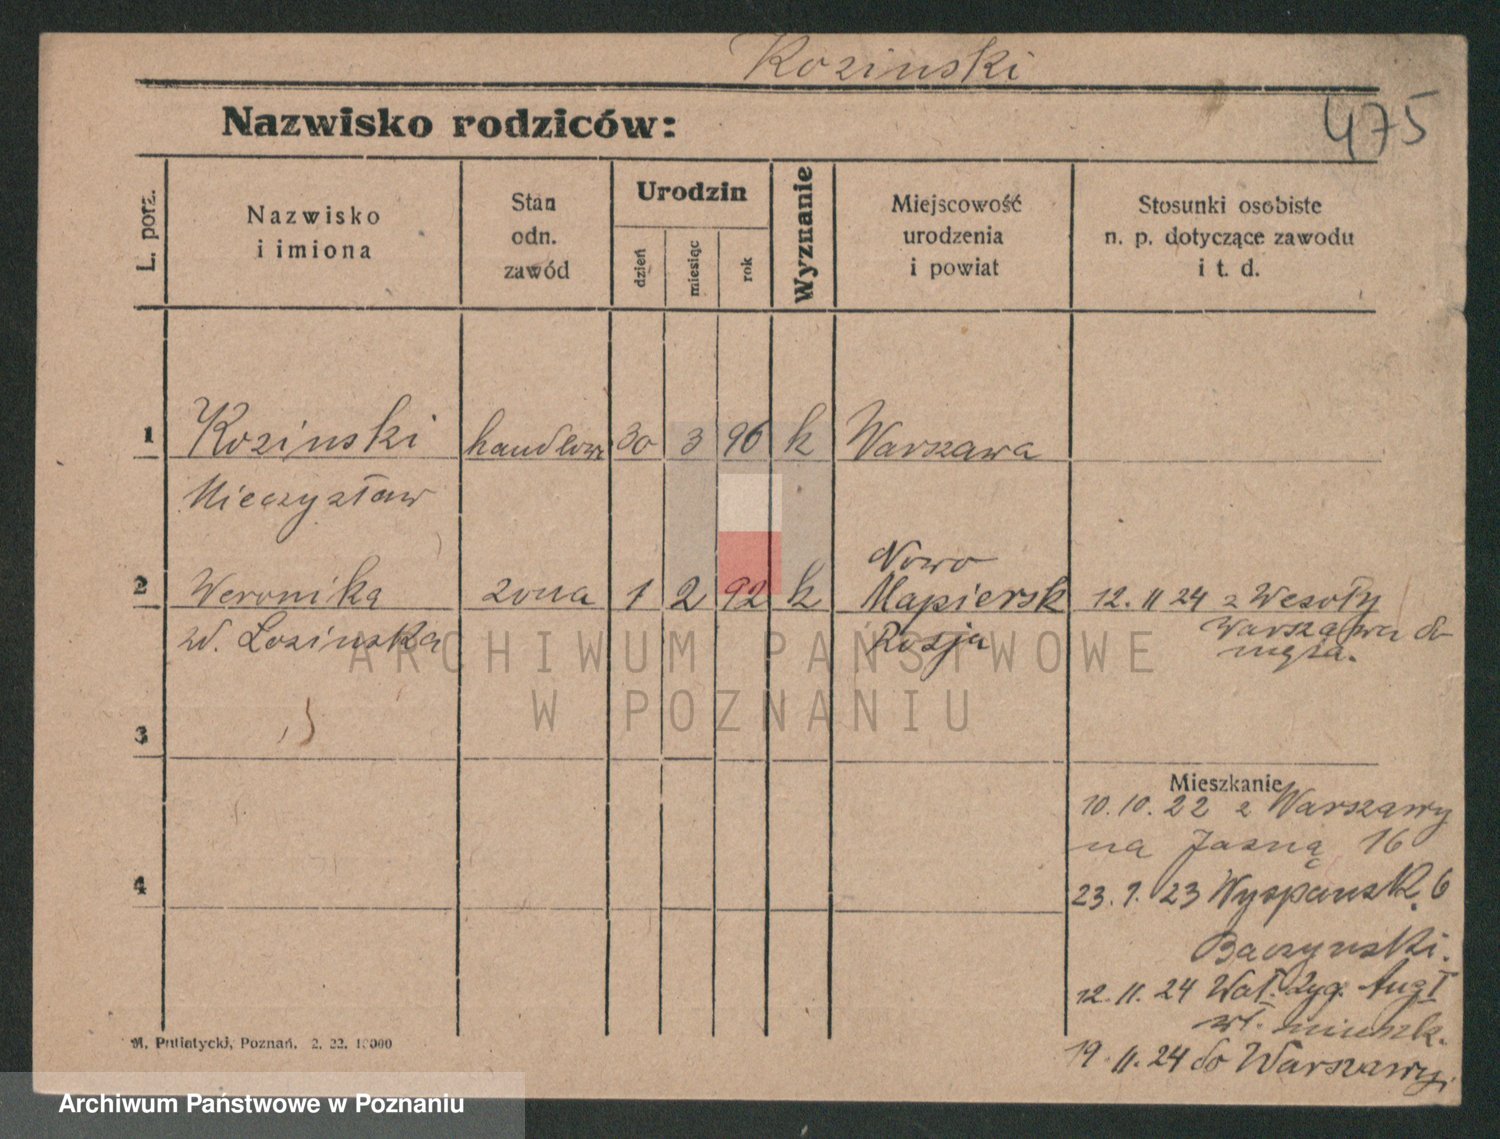 Kozinski
475
Nazwisko rodziców:
L. porz.
Nazwisko
i imiona
Stan
odn.
zawód
Urodzin
dzień
miesiąc
rok
Wyznanie
Miejscowość
urodzenia
i powiat
Stosunki osobiste
n. p. dotyczące zawodu
i t. d.
1 Kozinski handlowy 30 3 96 k Warszawa
Mieczysław
Nowo
2 Weronika zona 1 2 92 k Mapiersk 12. 11 24 z Wesoły
zd. Lozinska Rosja Warszawa do
męza.
3
Mieszkanie
10. 10. 22 z Warszawy
na Jasną 16
4
23. 1. 23 Wyspansk. 6
Baczynski.
12. 11. 24 Wał. Zyg. Aug I
wł. mieszk.
19. 11. 24 do Warszawy
M. Putiatycki, Poznań. 2. 22. 10000
ARCHIWUM PAŃSTWOWE
W POZNANIU
Archiwum Państwowe w Poznaniu